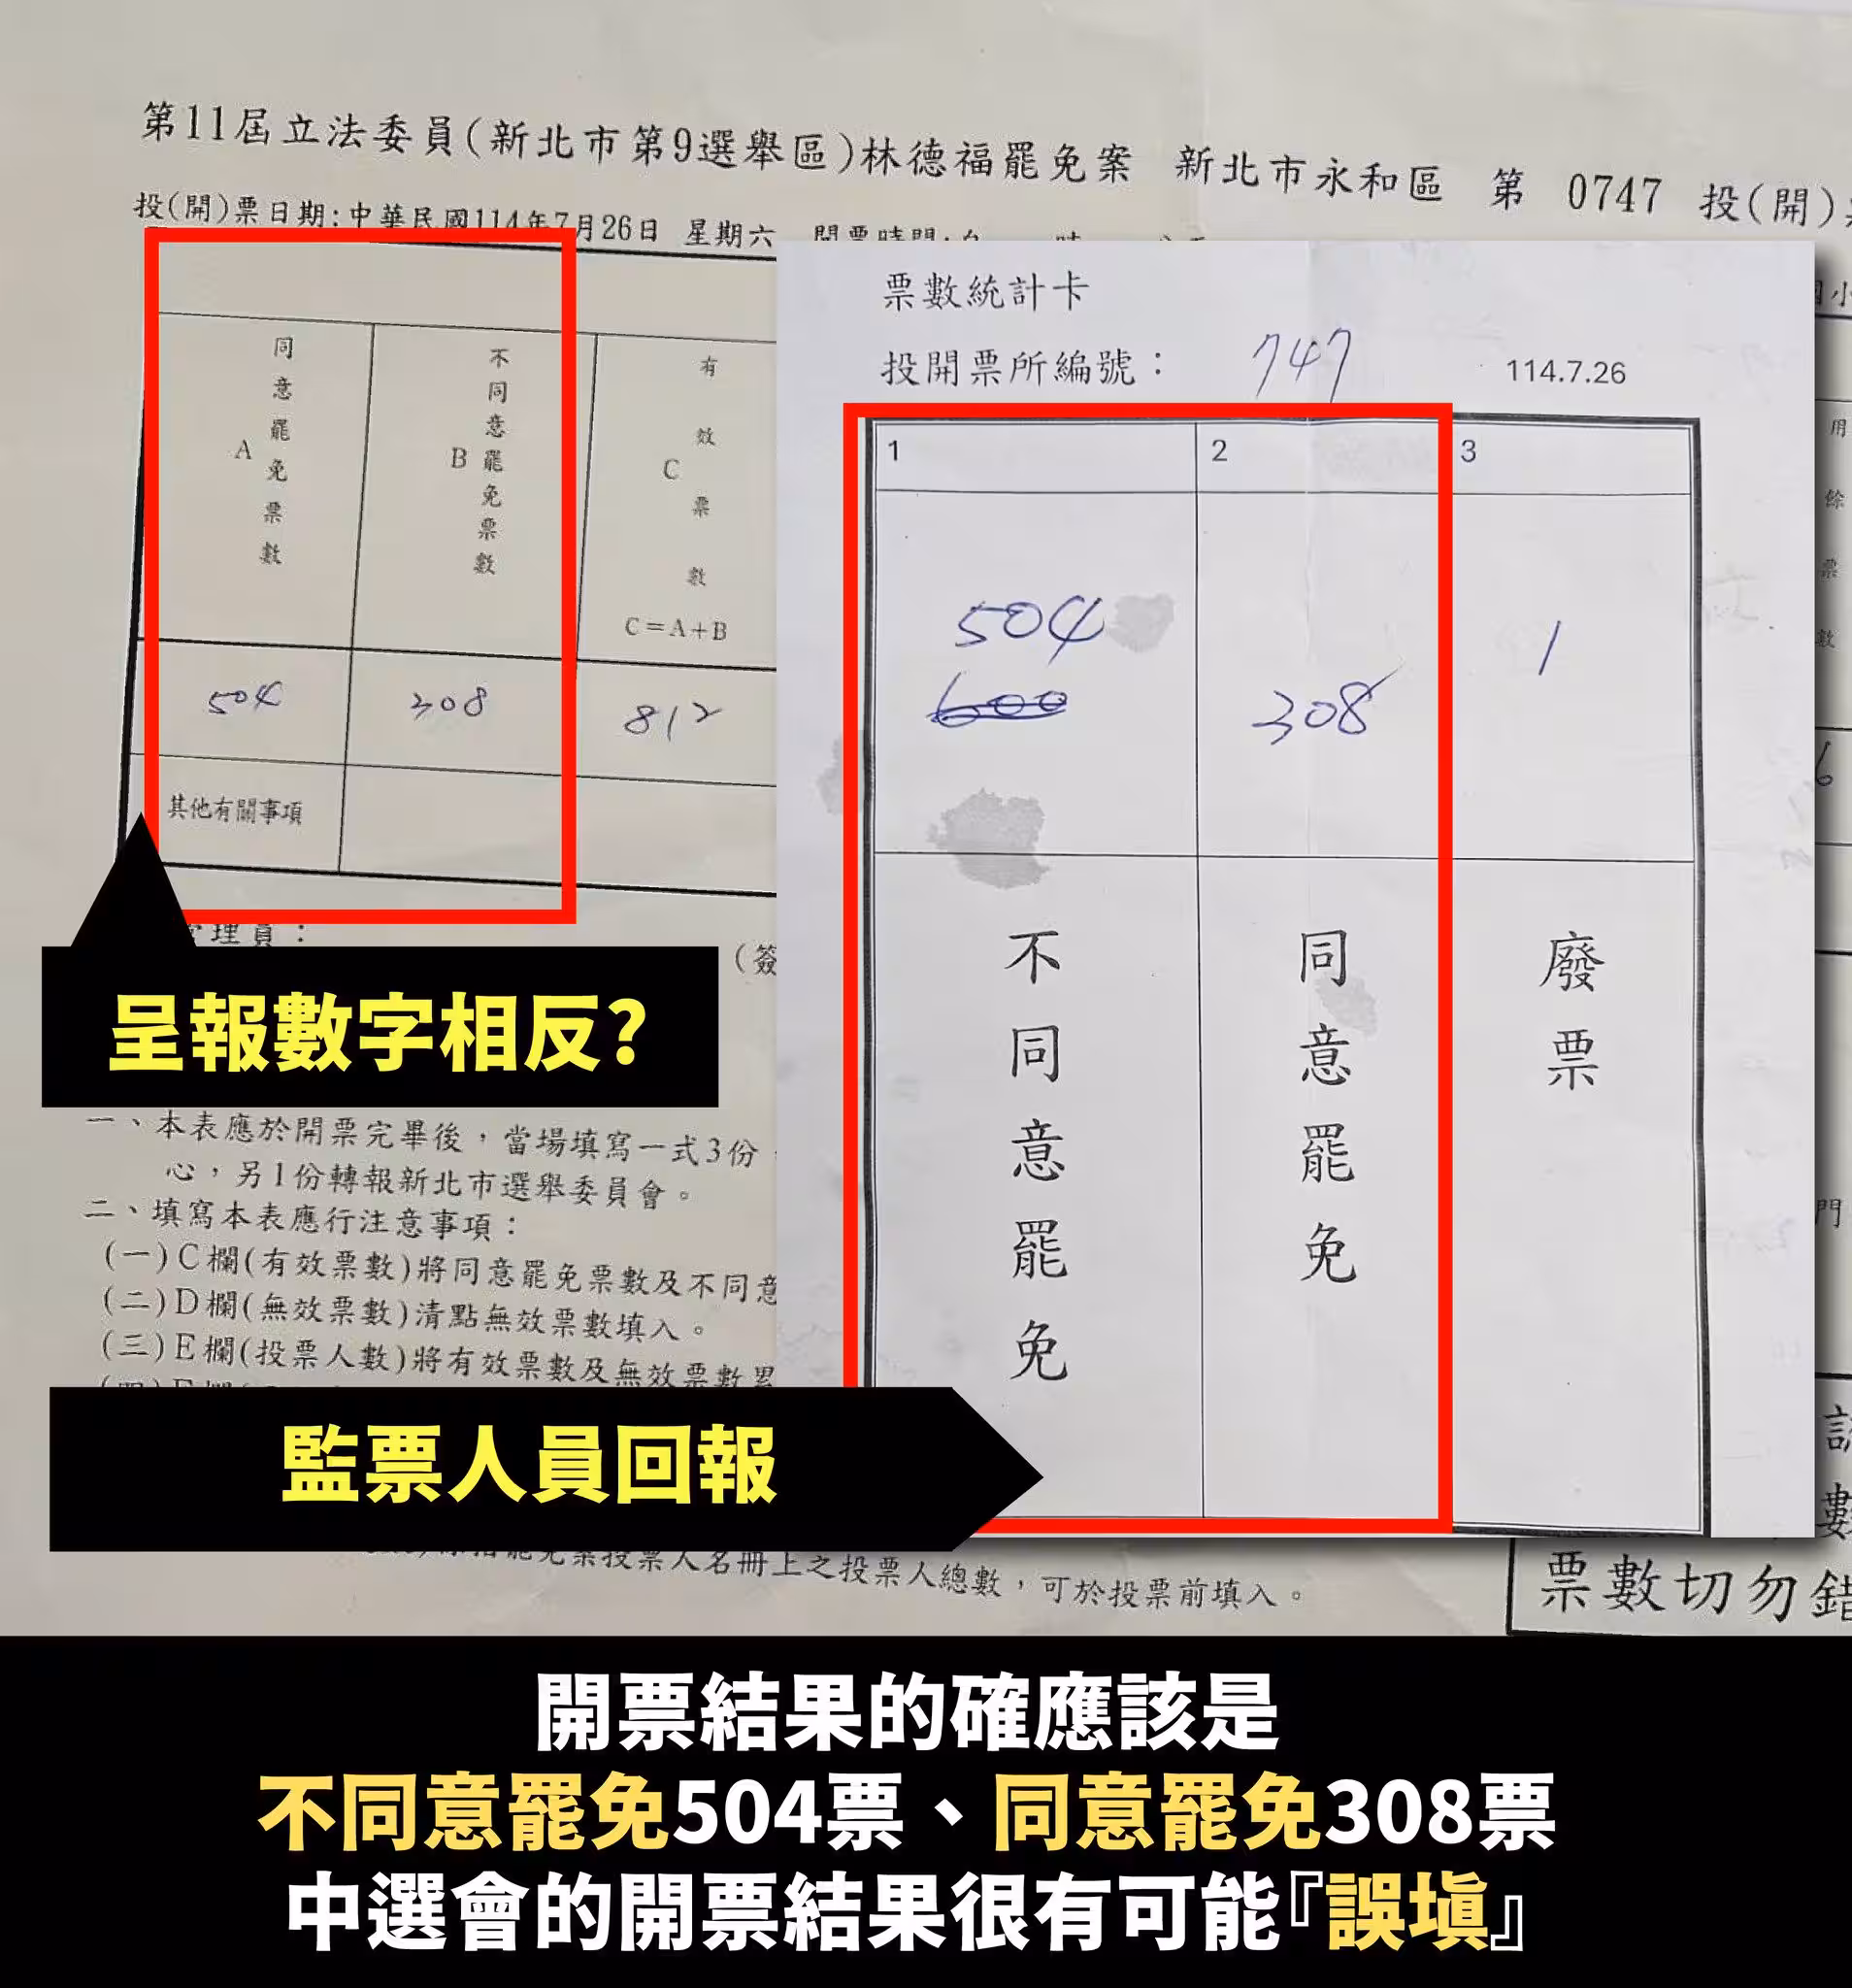 第11屆立法委員(新北市第9選舉區)林德福罷免案 新北市永和區 第 0747 投(開)
投(開)票日期:中華民國114年7月26日 星期六 開票時間:自
同意罷免票數
A
不同意罷免票數
B
有效票數
C
C=A+B
504
308
812
其他有關事項
管理員：
(簽
呈報數字相反?
一、本表應於開票完畢後，當場填寫一式3份
心，另1份轉報新北市選舉委員會。
二、填寫本表應行注意事項：
(一)C欄(有效票數)將同意罷免票數及不同意
(二)D欄(無效票數)清點無效票數填入。
(三)E欄(投票人數)將有效票數及無效票數累
監票人員回報
罷免案投票人名冊上之投票人總數，可於投票前填入。
票數切勿錯
票數統計卡
投開票所編號： 747 114.7.26
1 2 3
504
600
308
1
不同意罷免
同意罷免
廢票
用餘票數
6
門
開票結果的確應該是
不同意罷免504票、同意罷免308票
中選會的開票結果很有可能『誤填』